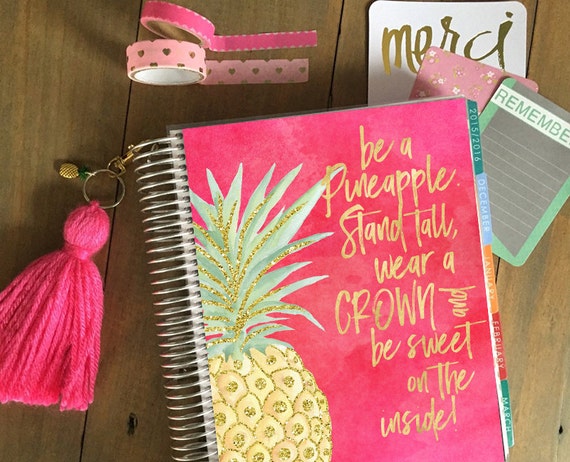 merci
REMEMBER
2015/2016
DECEMBER
JANUARY
FEBRUARY
MARCH
be a
Pineapple.
Stand tall,
wear a
CROWN and
be sweet
on the
inside!